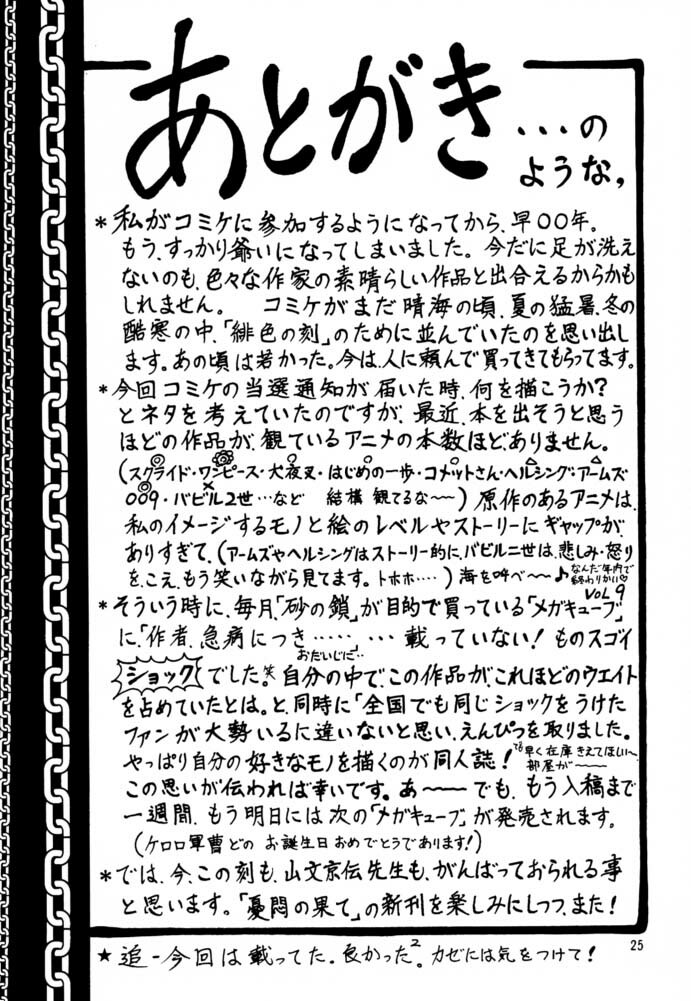 あとがき
…のような。
*私がコミケに参加するようになってから、早〇〇年。
もう、すっかり爺いになってしまいました。今だに足が洗え
ないのも、色々な作家の素晴らしい作品と出合えるからかも
しれません。 コミケがまだ晴海の頃、夏の猛暑、冬の
酷寒の中、「緋色の刻」のために並んでいたのを思い出し
ます。あの頃は若かった。今は、人に頼んで買ってきてもらってます。
*今回コミケの当選通知が届いた時、何を描こうか?
とネタを考えていたのですが、最近、本を出そうと思う
ほどの作品が、観ているアニメの本数ほど、ありません。
(スクライド・ワンピース・犬夜叉・はじめの一歩・コメットさん・ヘルシング・アームズ
009・バビル2世…など 結構 観てるな〜〜) 原作のあるアニメは、
私のイメージするモノと絵のレベルやストーリーにギャップが
ありすぎて、(アームズやヘルシングはストーリー的に、バビル二世は、悲しみ・怒り
を、こえ、もう笑いながら見てます。トホホ‥‥) 海を呼べ〜〜♪
なんだ年内で
終わりかい♡
VOL9
*そういう時に、毎月「砂の鎖」が目的で買っている「メガキューブ」
に、「作者、急病につき……」… 載っていない! ものスゴイ
おだいじに‥
ショックでした。笑 自分の中で、この作品が、これほどのウエイト
を占めていたとは。と、同時に「全国でも同じショックをうけた
ファンが大勢いるに違いないと思い、えんぴつを取りました。
やっぱり自分の好きなモノを描くのが同人誌!
でも早く在庫きえてほしい〜
部屋が〜〜
この思いが伝われば幸いです。あ〜〜でも、もう入稿まで
一週間、もう明日には次の「メガキューブ」が発売されます。
(ケロロ軍曹どの お誕生日おめでとうであります!)
*では、今、この刻も、山文京伝先生も、がんばっておられる事
と思います。「憂悶の果て」の新刊を楽しみにしつつ、また!
25
★追-今回は載ってた。良かった²。カゼには気をつけて!